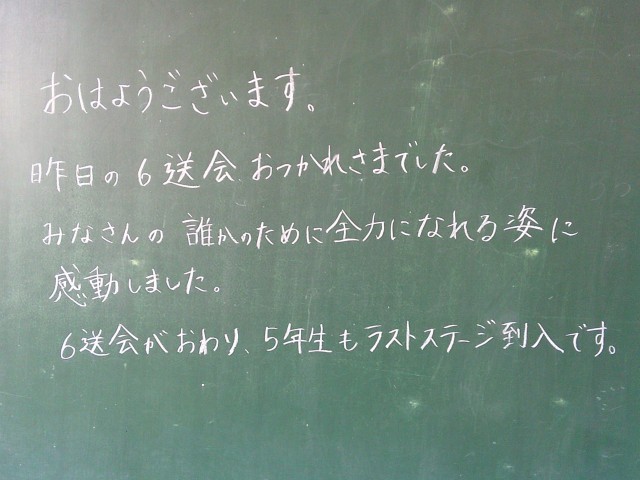 おはようございます。
昨日の6送会おつかれさまでした。
みなさんの誰かのために全力になれる姿に
感動しました。
6送会がおわり、5年生もラストステージ到入です。